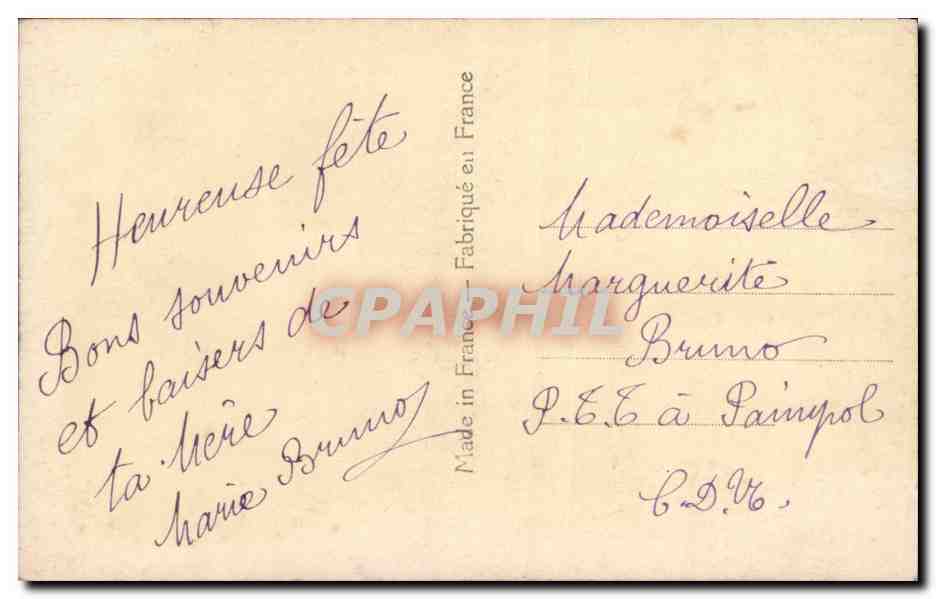 Heureuse fête
Bons souvenirs
et baisers de
ta Mère
Marie Bruno
Made in France - Fabriqué en France
CPAPHIL
Mademoiselle
Marguerite
Bruno
P.T.T à Paimpol
C.D.N.